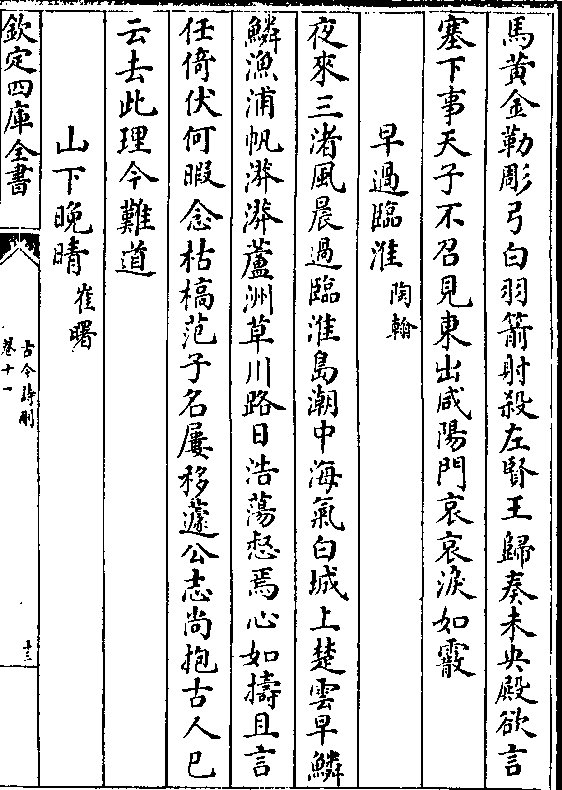 馬黃金勒彫弓白羽箭射殺左賢王歸奏未央殿欲言
塞下事天子不召見東出咸陽門哀哀淚如霰
早過臨淮 陶翰
夜來三渚風晨過臨淮島潮中海氣白城上楚雲早鱗
鱗漁浦帆漭漭蘆洲草川路日浩蕩惄焉心如擣且言
任倚伏何暇念枯槁范子名屢移蘧公志尚抱古人已
云去此理今難道
山下晚晴 崔曙
欽定四庫全書
古今詩刪
卷十一
十三